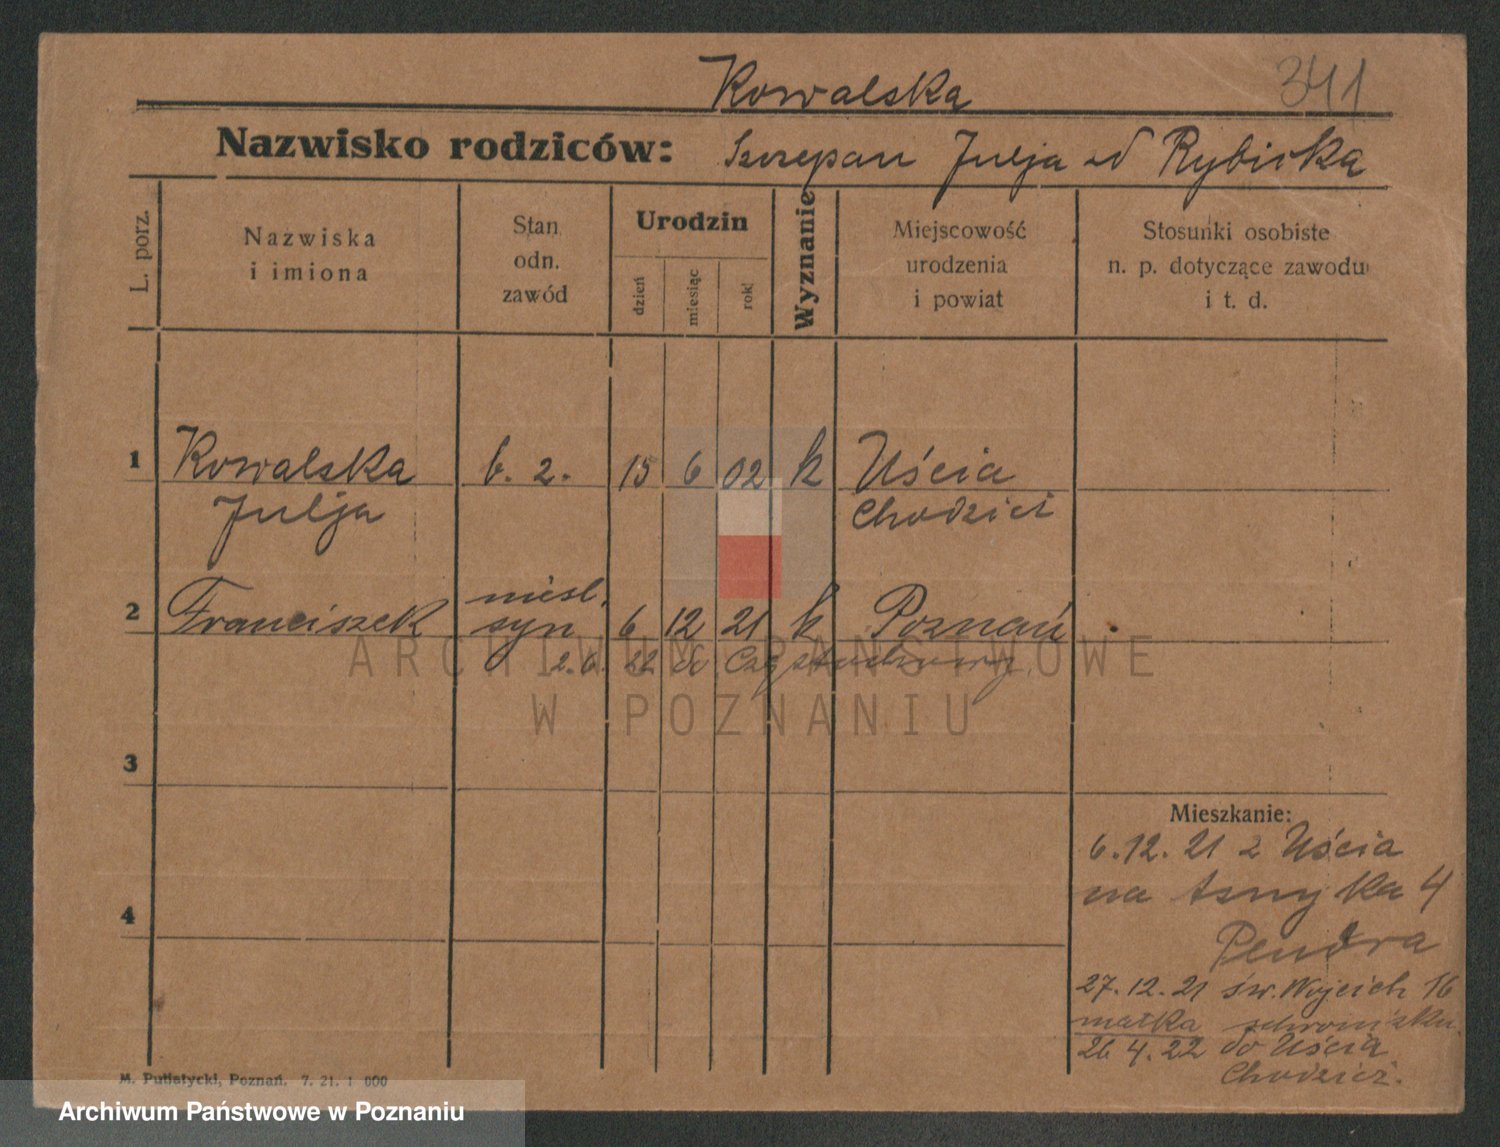 Kowalska 341
Nazwisko rodziców: Szczepan Julja d Rybicka
L. porz.
Nazwiska
i imiona
Stan
odn.
zawód
Urodzin
dzień
miesiąc
rok
Wyznanie
Miejscowość
urodzenia
i powiat
Stosunki osobiste
n. p. dotyczące zawodu
i t. d.
1 Kowalska b. z. 15 6 02 k Uścia
Julja Chodzież
2 Franciszek nieśl. syn 6 12 21 k Poznań
2.6. 22 do Częstochowy
3
4
Mieszkanie:
6.12.21 z Uścia
na Asnyka 4
Pendra
27.12.21 św. Wojciech 16
matka schronisku
26 4.22 do Uścia
Chodzież.
M. Putiatycki, Poznań. 7. 21. 1 000
ARCHIWUM PAŃSTWOWE
W POZNANIU
Archiwum Państwowe w Poznaniu